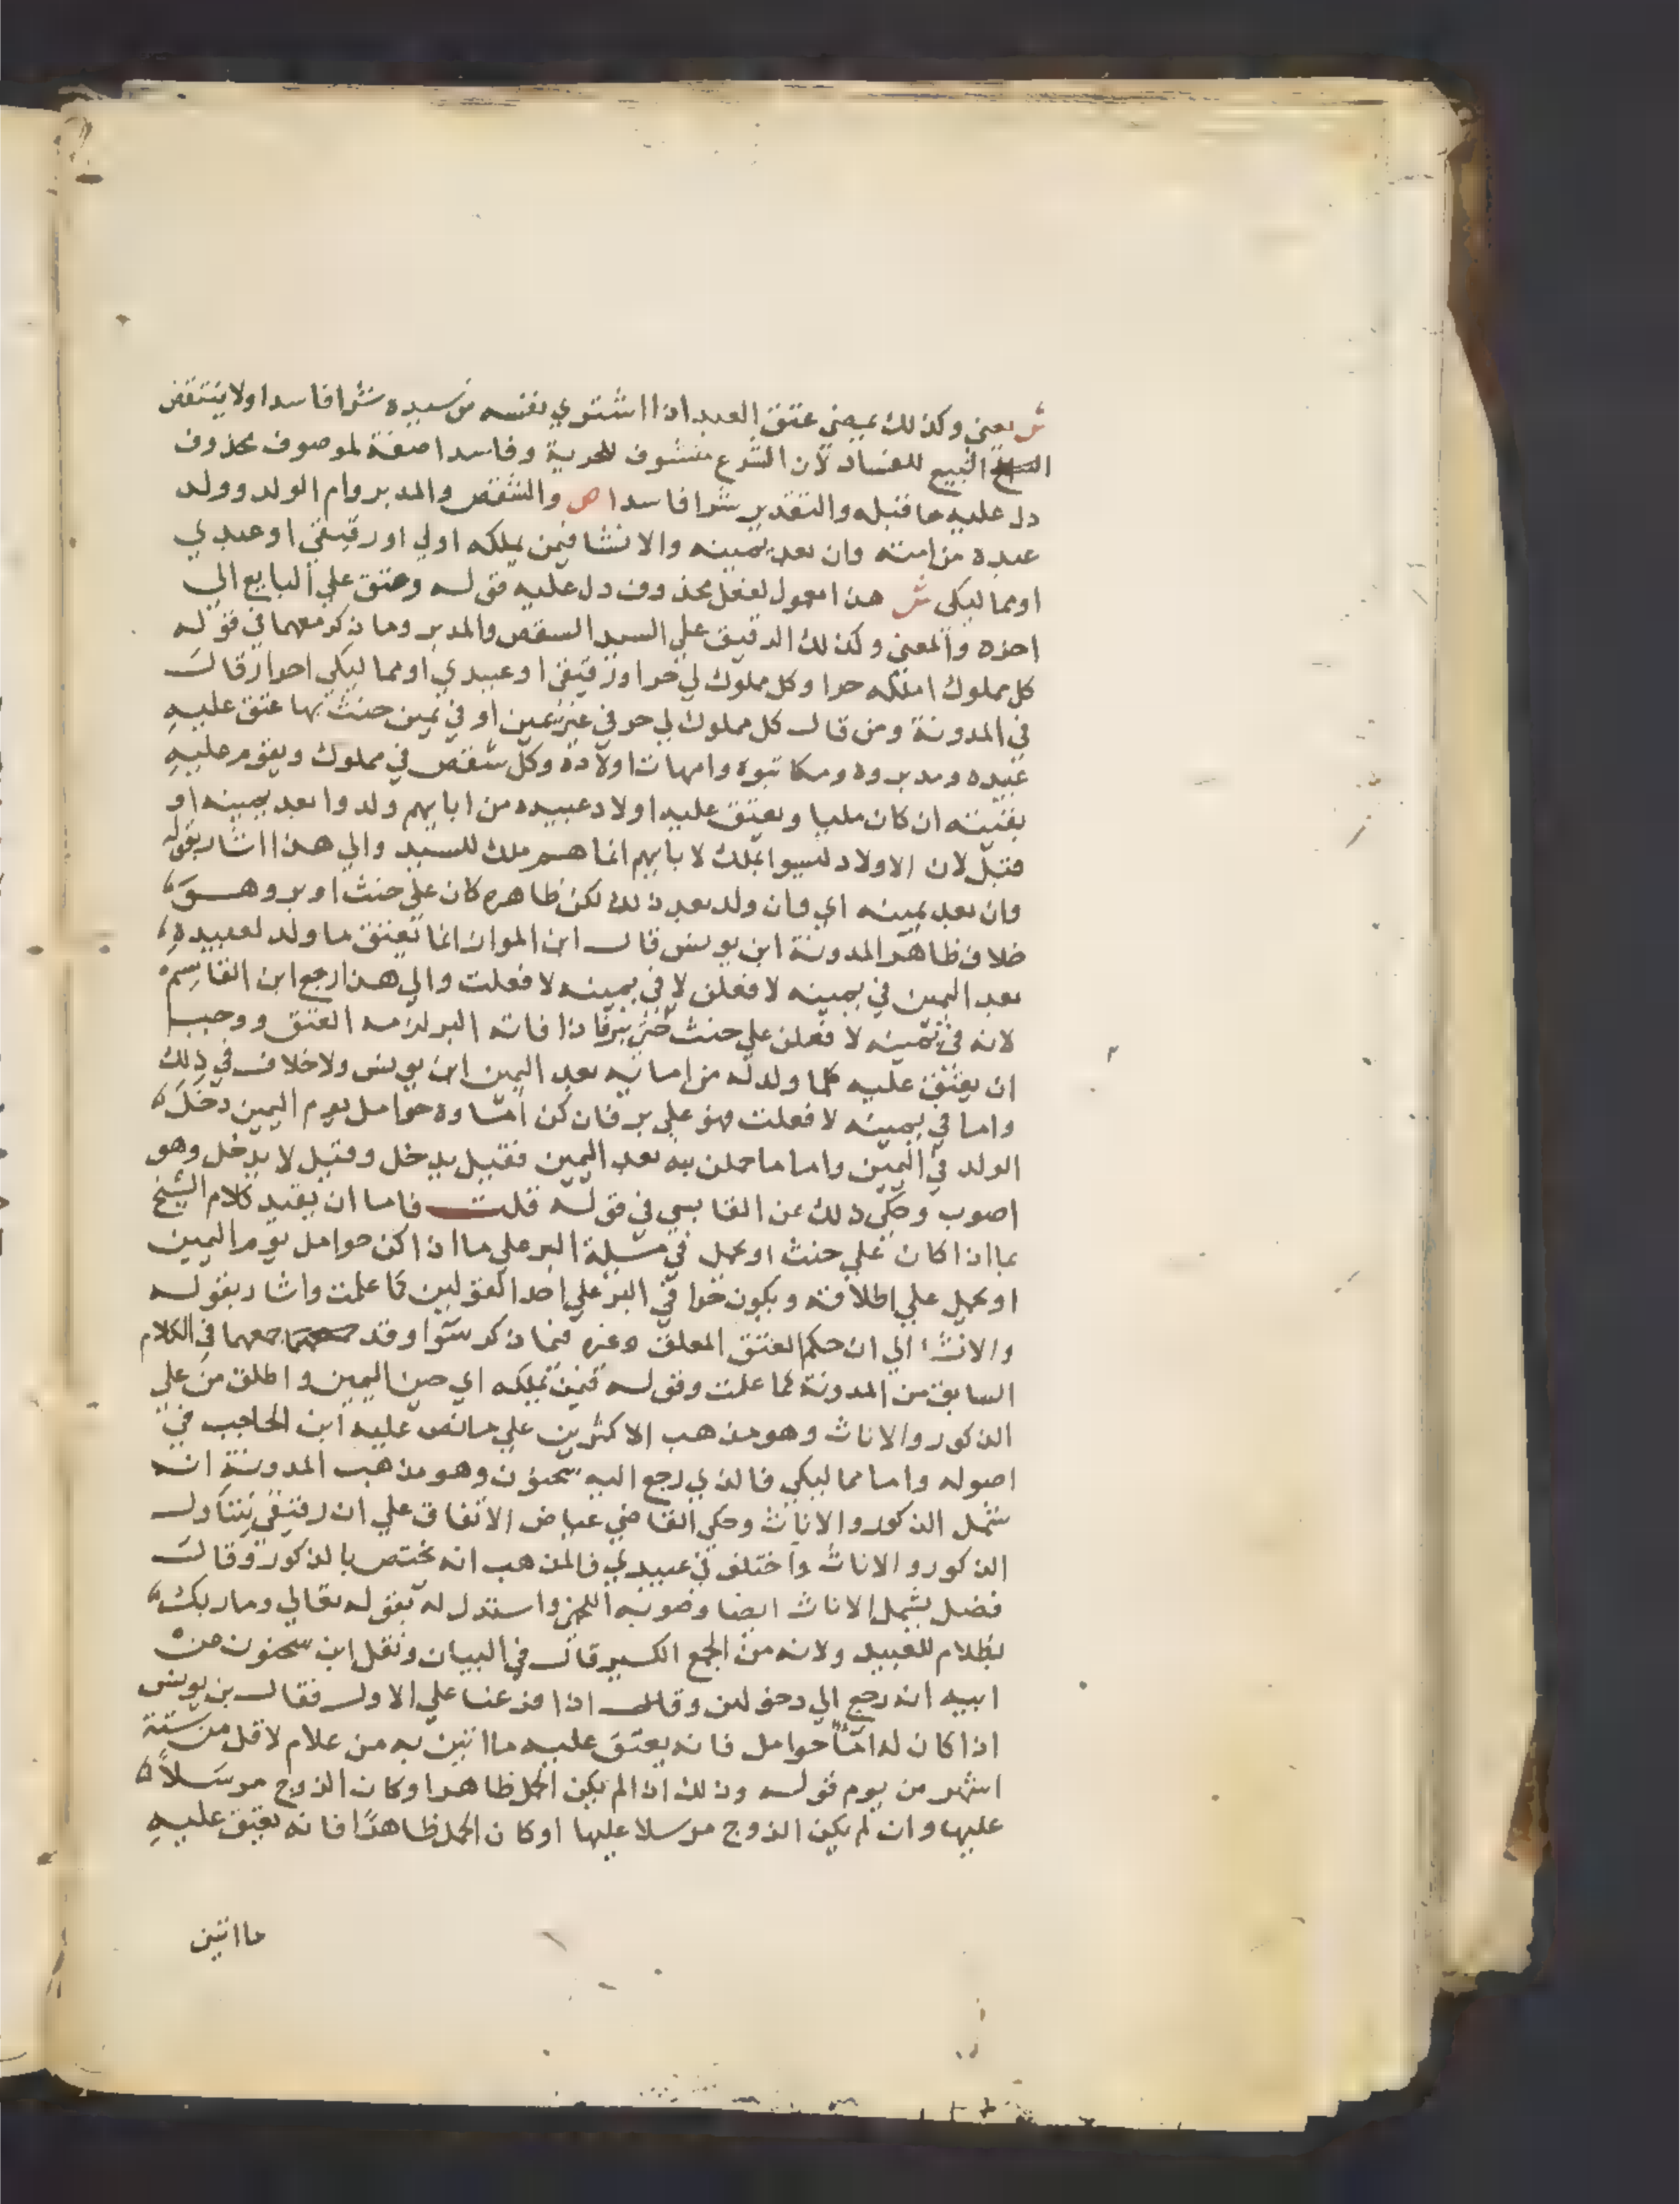 ش يعني وكذلك يمضي عتق العبد اذا اشتري نفسه من سيده شرا فاسدا ولا ينتقض
البيع للفساد لان الشرع متشوف للحرية وفاسدا صفة لموصوف محذوف
دل عليه ما قبله والتقدير شرا فاسدا ص والشقص والمدبر وام الولد وولد
عبده من امته وان بعد يمينه والانشا فيمن يملكه او لي او رقيقي او عبيدي
او مماليكي ش هذا معمول لفعل محذوف دل عليه قوله وعتق علي البايع الي
اخره والمعني وكذلك الرقيق علي السيد الشقص والمدبر وما ذكر معهما في قوله
كل مملوك املكه حرا وكل مملوك لي حرا ورقيقي او عبيدي او مماليكي احرار قال
في المدونة ومن قال كل مملوك لي حر في غير يمين او في يمين حنث بها عتق عليه
عبيده ومدبروه ومكاتبوه وامهات اولاده وكل شقص في مملوك ويقوم عليه
بقيته ان كان مليا ويعتق عليه اولاد عبيده من امايهم ولدوا بعد يمينه او
قبل لان الاولاد ليسوا بملك لابايهم انما هم ملك للسيد والي هذا اشار بقوله
وان بعد يمينه اي وان ولد بعد ذلك لكن ظاهره كان علي حنث او بر وهو
خلاف ظاهر المدونة ابن يونس قال ابن المواز انما يعتق ما ولد لعبيده
بعد اليمين في يمينه لافعلن لا في يمينه لا فعلت والي هذا رجع ابن القاسم
لانه في يمينه لافعلن علي حنث حتي يبر فاذا فاته البر لزمه العتق ووجب
ان يعتق عليه كلما ولد له من امائه بعد اليمين ابن يونس ولا خلاف في ذلك
واما في يمينه لا فعلت فهو علي بر فان كن اماوه حوامل يوم اليمين دخل
الولد في اليمين واما ما حملن به بعد اليمين فقيل يدخل وقيل لا يدخل وهو
اصوب وحكي ذلك عن القابسي في قوله قلت فاما ان يقيد كلام الشيخ
بما اذا كان علي حنث او يحمل في مسيلة البر علي ما اذا كن حوامل يوم اليمين
او يحمل علي اطلاقه ويكون في البر علي احد القولين كما علمت واشار بقوله
والانشا الي ان حكم العتق المعلق وغيره فيما ذكر سوا وقد جمعهما في الكلام
السابق من المدونة كما علمت وقوله فيمن يملكه اي حين اليمين واطلق من علي
الذكور والاناث وهو مذهب الاكثرين علي ما نص عليه ابن الحاجب في
اصوله واما مماليكي فالذي رجع اليه سحنون وهو مذهب المدونة انه
يشمل الذكور والاناث وحكي القاضي عياض الاتفاق علي ان رقيقي يتناول
الذكور والاناث واختلف في عبيدي فالمذهب انه يختص بالذكور وقال
فضل يشمل الاناث ايضا وصوبه اللخمي واستدل له بقوله تعالي وما ربك
بظلام للعبيد ولانه من الجمع الكسير قال في البيان ونقل ابن سحنون عن
ابيه انه رجع الي دخولهن وقال اذا فرعنا علي الاول فقال بن يونس
اذا كان له اماً حوامل فانه يعتق عليه ما اتين به من غلام لاقل من ستة
اشهر من يوم قوله وذلك اذا لم يكن الحمل ظاهرا وكان الزوج مرسلاً
عليها وان لم يكن الزوج مرسلا عليها او كان الحمل ظاهرًا فانه يعتق عليه
ما اتين